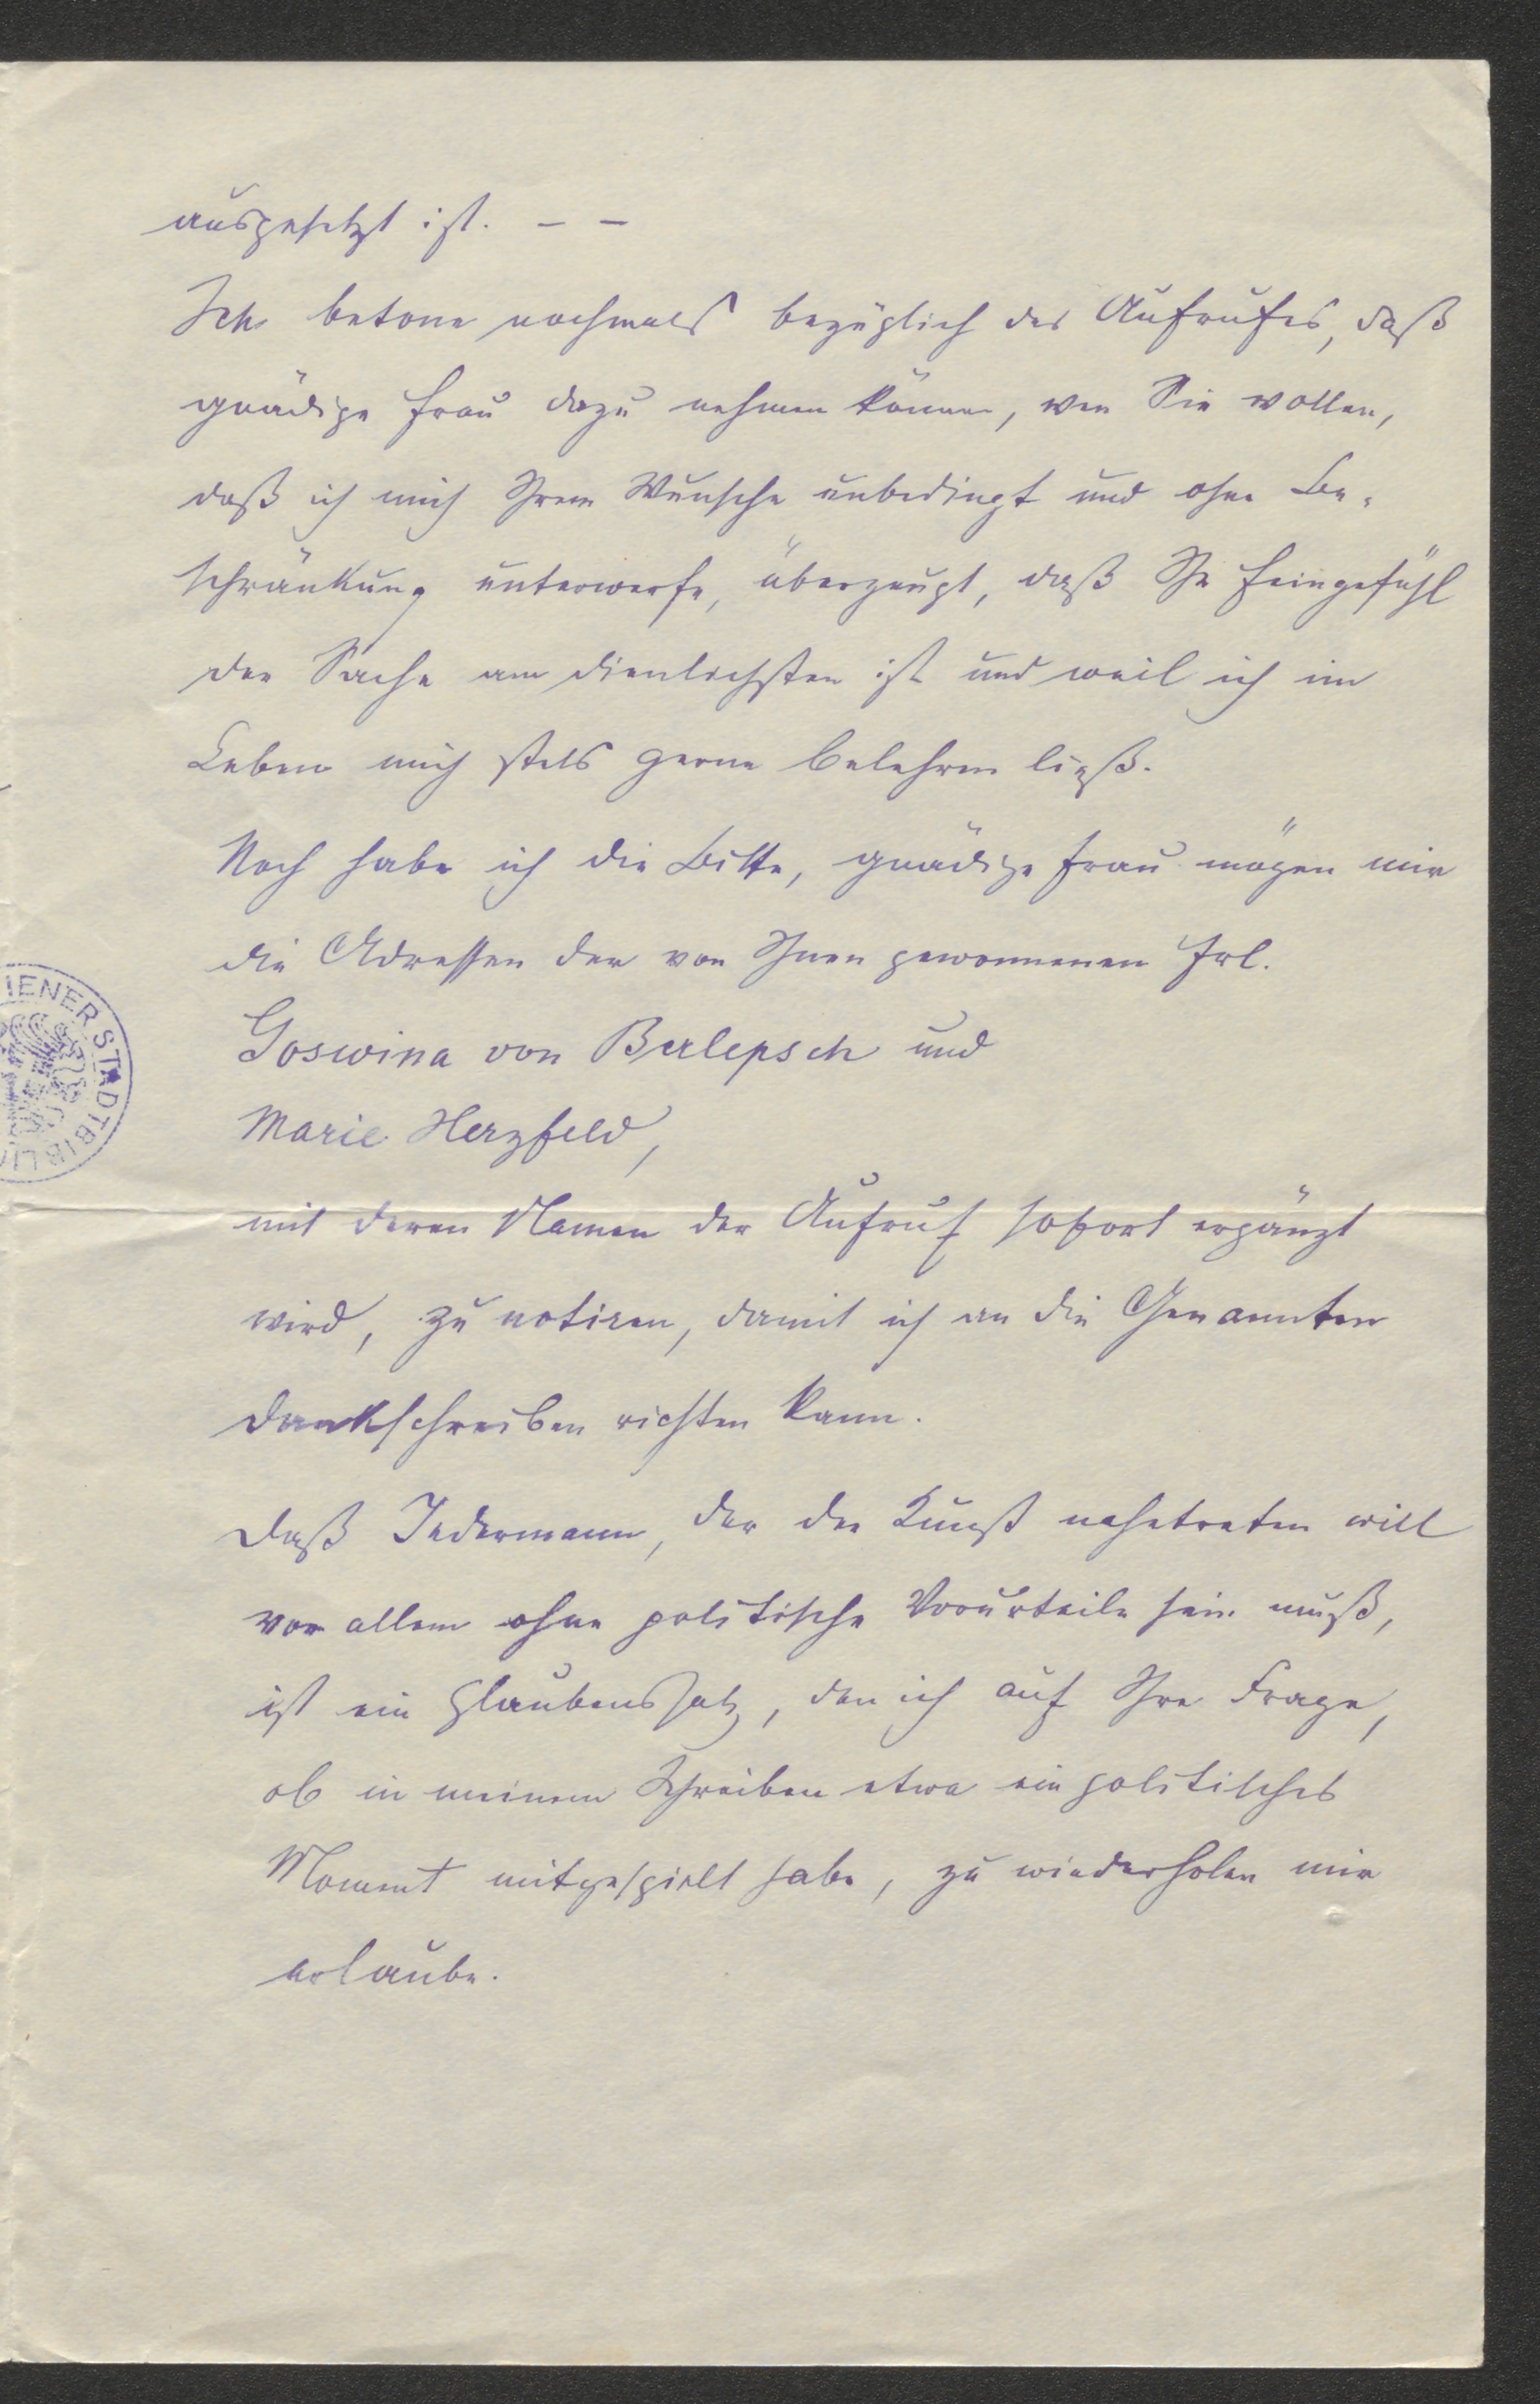 ausgesetzt ist. – –
Ich betone nochmals bezüglich des Aufrufes, daß
gnädige Frau dazu nehmen können, wen Sie wollen,
daß ich mich Ihrem Wunsche unbedingt und ohne Be-
schränkung unterwerfe, überzeugt, daß Ihr Feingefühl
der Sache am dienlichsten ist und weil ich im
Leben mich stets gerne belehren ließ.
Noch habe ich die Bitte, gnädige Frau mögen mir
die Adressen der von Ihnen gewonnenen Frl.
Goswina von Berlepsch und
Marie Herzfeld,
mit deren Namen der Aufruf sofort ergänzt
wird, zu notiren, damit ich an die Genannten
Dankschreiben richten kann.
Daß Jedermann, der der Kunst nahetreten will
vor allem ohne politische Vorurteile sein muß,
ist ein Glaubenssatz, den ich auf Ihre Frage,
ob in meinem Schreiben etwa ein politisches
Moment mitgespielt habe, zu wiederholen mir
erlaube.
IENER STADTBIBLI